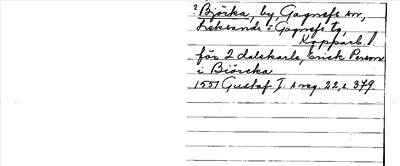 ? Björka, by, Gagnefs sn,
Leksands o Gagnefs tg,
Kopparb. l
för 2 dalskarle, Erick Person
i Biörcka
1551 Gustaf I:s reg. 22, s. 379